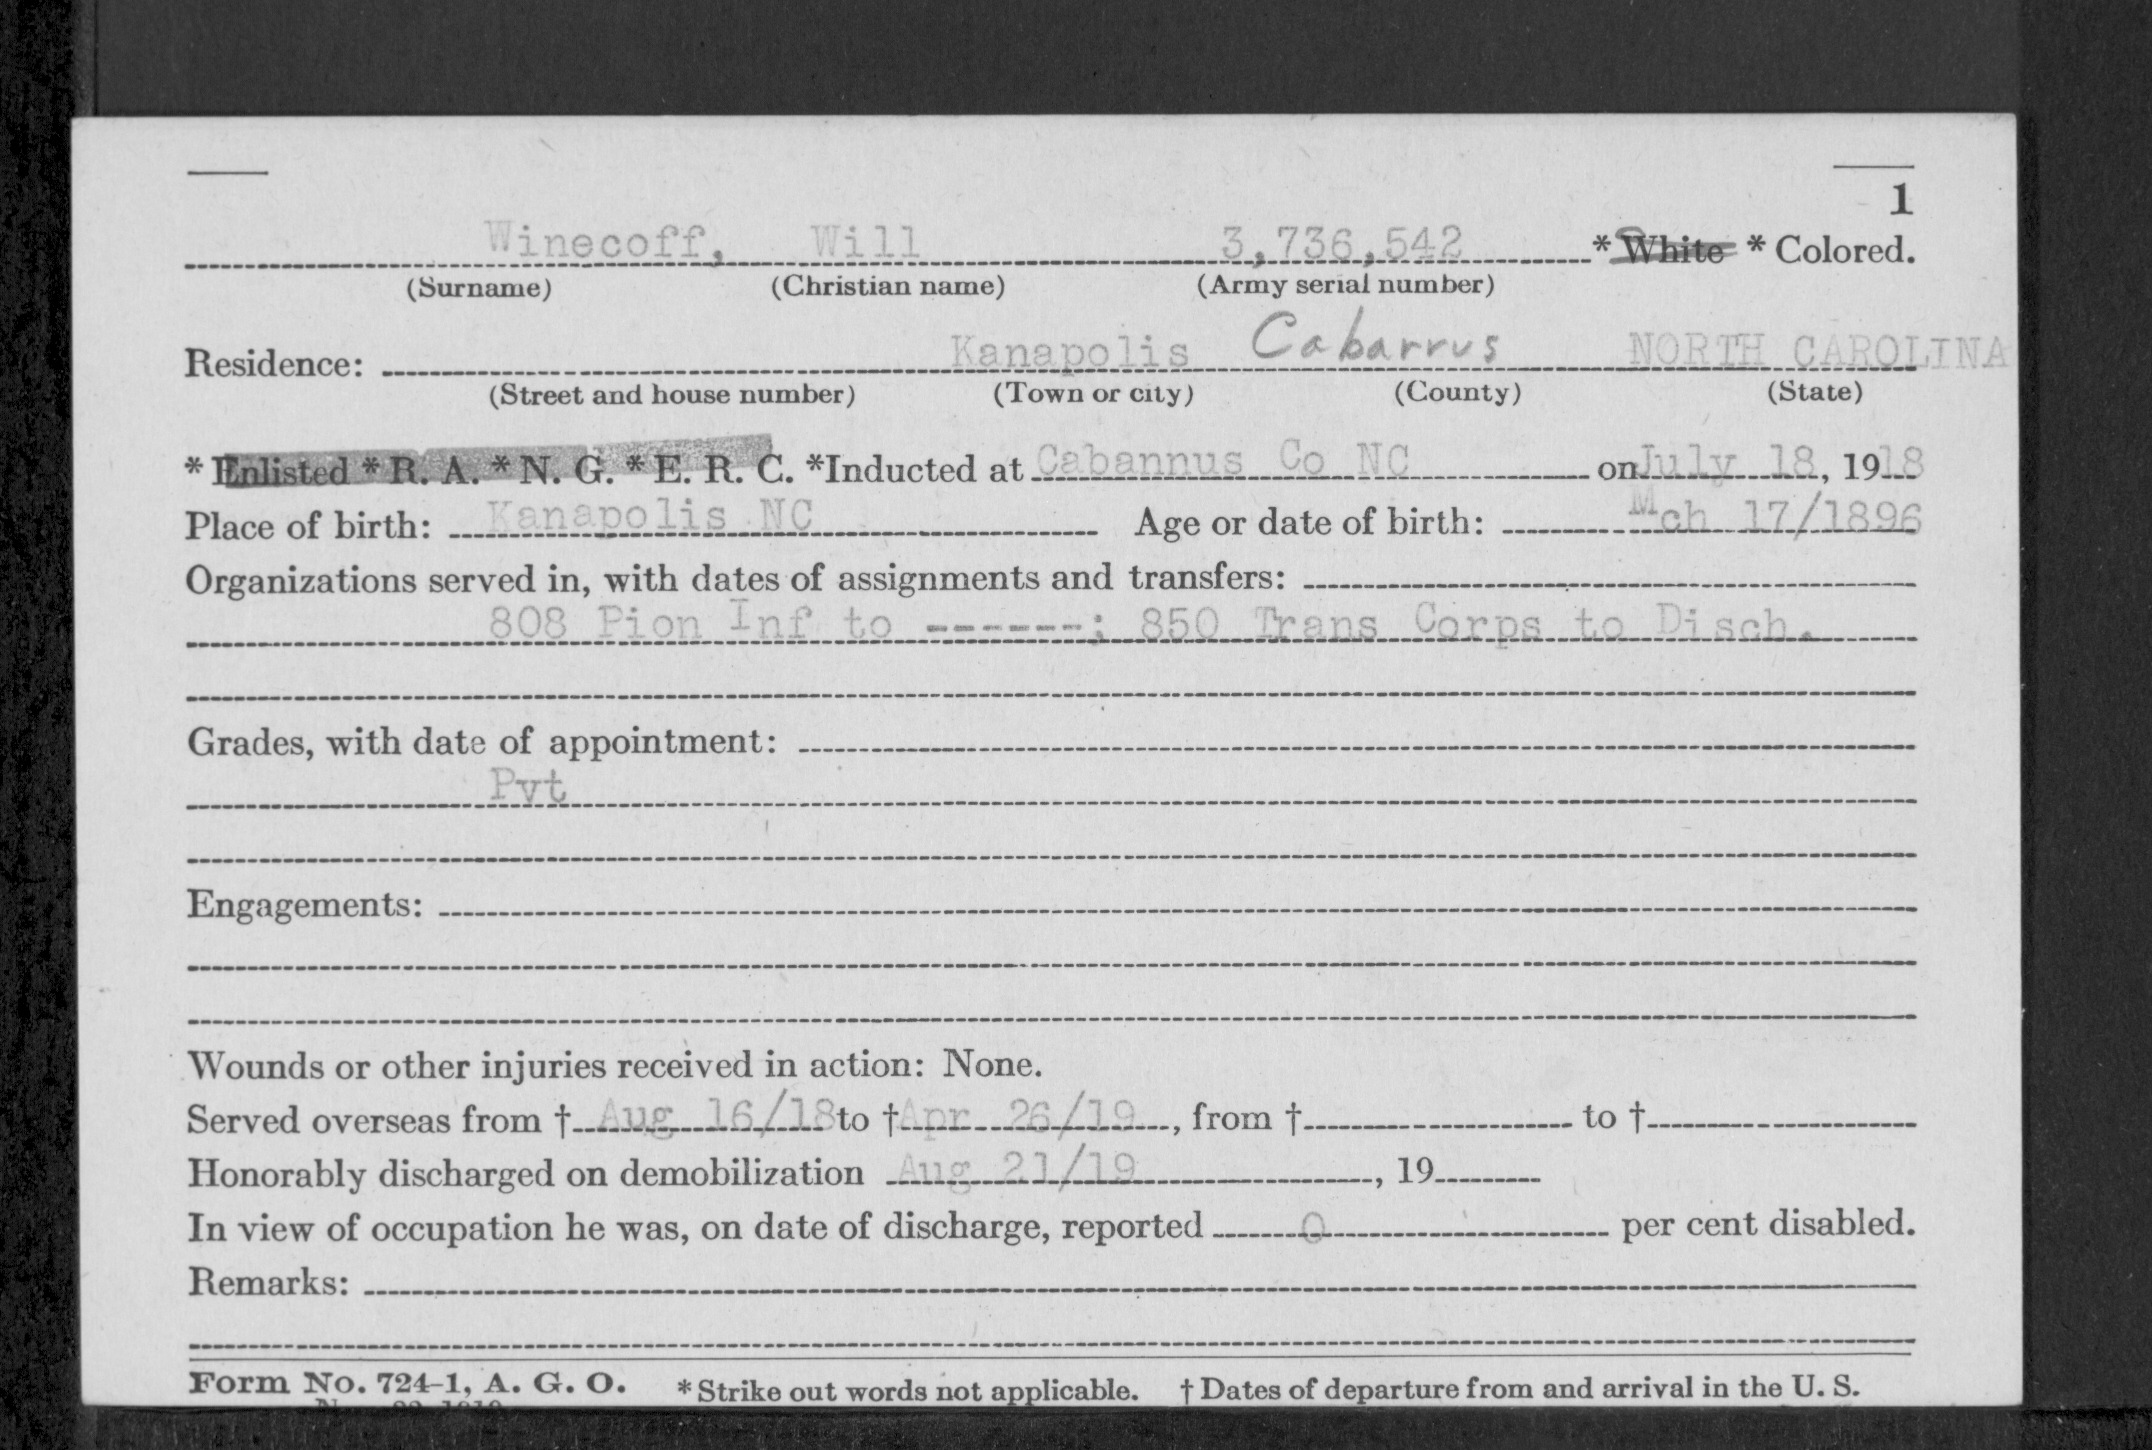 1
Winecoff, Will 3,736,542 * White * Colored.
(Surname) (Christian name) (Army serial number)
Residence: Kanapolis Cabarrus NORTH CAROLINA
(Street and house number) (Town or city) (County) (State)
* Enlisted * R. A. * N. G. * E. R. C. *Inducted at Cabannus Co NC on July 18, 1918
Place of birth: Kanapolis NC Age or date of birth: Mch 17/1896
Organizations served in, with dates of assignments and transfers:
808 Pion Inf to ------; 850 Trans Corps to Disch.
Grades, with date of appointment:
Pvt
Engagements:
Wounds or other injuries received in action: None.
Served overseas from † Aug 16/18 to † Apr 26/19, from † to †
Honorably discharged on demobilization Aug 21/19, 19
In view of occupation he was, on date of discharge, reported 0 per cent disabled.
Remarks:
Form No. 724-1, A. G. O. *Strike out words not applicable. † Dates of departure from and arrival in the U. S.